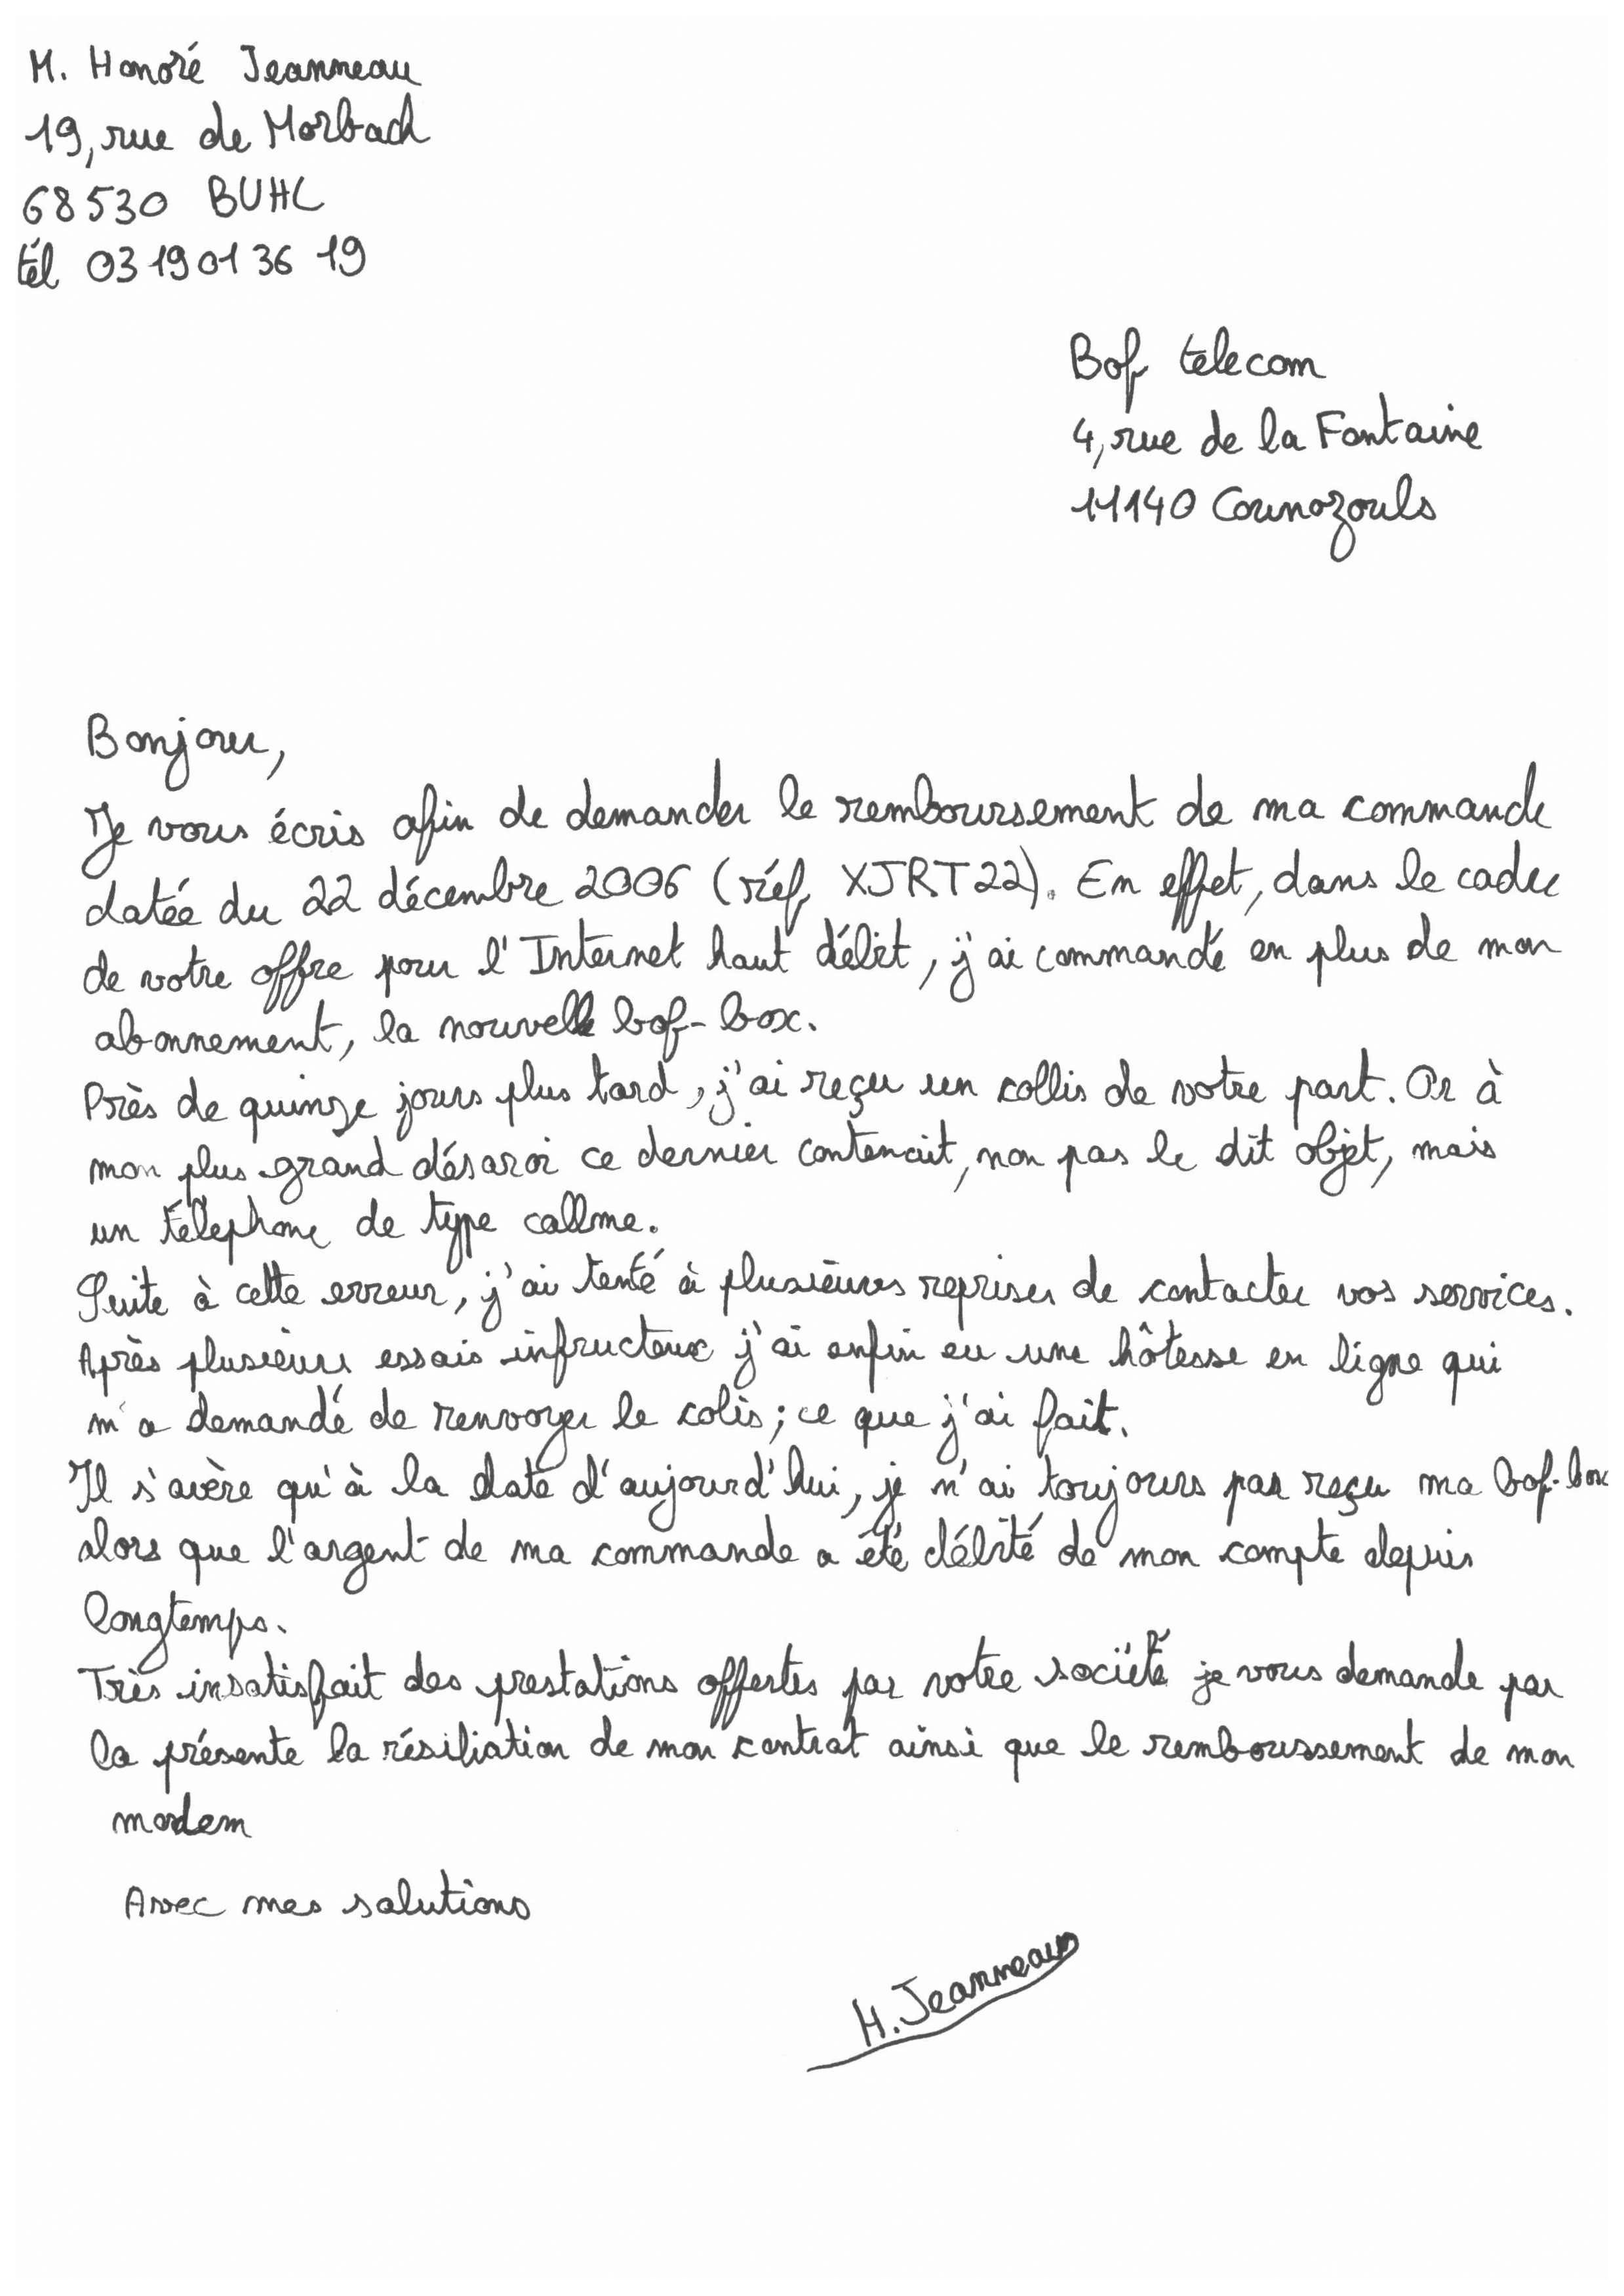 M. Honoré Jeanneau
19, rue de Morbach
68530 BUHL
tél 03 19 01 36 19
Bof telecom
4, rue de la Fontaine
11140 Counozouls
Bonjour,
Je vous écris afin de demander le remboursement de ma commande
datée du 22 décembre 2006 (réf XJRT22). En effet, dans le cadre
de votre offre pour l'Internet haut débit, j'ai commandé en plus de mon
abonnement, la nouvelle bof-box.
Près de quinze jours plus tard, j'ai reçu un collis de votre part. Or à
mon plus grand désaroi ce dernier contenait, non pas le dit objet, mais
un téléphone de type callme.
Suite à cette erreur, j'ai tenté à plusieures reprises de contacter vos services.
Après plusieurs essais infructeux j'ai enfin eu une hôtesse en ligne qui
m'a demandé de renvoyer le colis; ce que j'ai fait.
Il s'avère qu'à la date d'aujourd'hui, je n'ai toujours pas reçu ma bof-box
alors que l'argent de ma commande a été débité de mon compte depuis
longtemps.
Très insatisfait des prestations offertes par votre société je vous demande par
la présente la résiliation de mon contrat ainsi que le remboussement de mon
modem
Avec mes salutions
H. Jeanneau